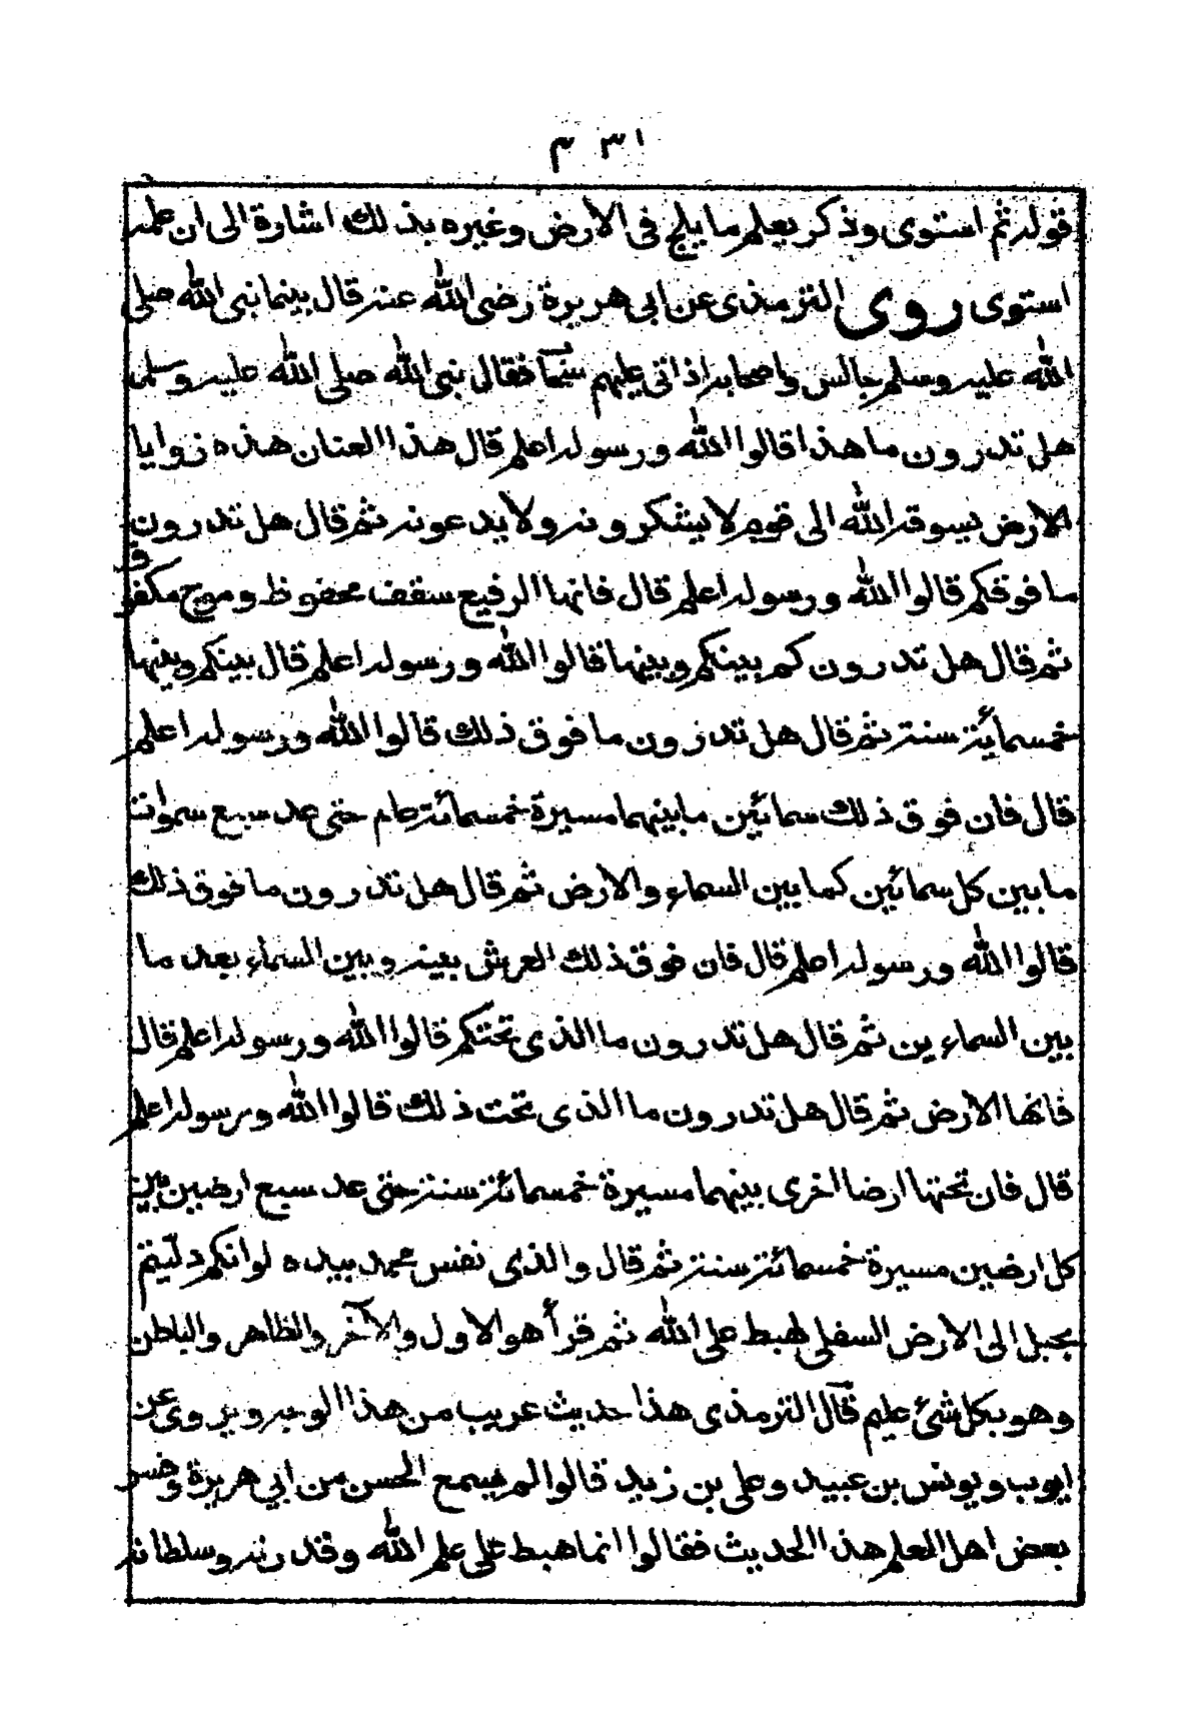 ٤٣١
قوله ثم استوى وذكر يعلم ما يلج فى الارض وغيره بذلك اشارة الى ان علمه
استوى روى الترمذى عن ابى هريرة رضى الله عنه قال بينما نبى الله صلى
الله عليه وسلم جالس واصحابه اذ اتى عليهم فقال نبى الله صلى الله عليه وسلم
هل تدرون ما هذا قالوا الله ورسوله اعلم قال هذا العنان هذه زوايا
الارض يسوقه الله الى قوم لا يشكرونه ولا يدعونه ثم قال هل تدرون
ما فوقكم قالوا الله ورسوله اعلم قال فانها الرفيع سقف محفوظ وموج مكفوف
ثم قال هل تدرون كم بينكم وبينها قالوا الله ورسوله اعلم قال بينكم وبينها
خمسمائة سنة ثم قال هل تدرون ما فوق ذلك قالوا الله ورسوله اعلم
قال فان فوق ذلك سمائين ما بينهما مسيرة خمسمائة عام حتى عد سبع سموات
ما بين كل سمائين كما بين السماء والارض ثم قال هل تدرون ما فوق ذلك
قالوا الله ورسوله اعلم قال فان فوق ذلك العرش بينه وبين السماء بعد ما
بين السماءين ثم قال هل تدرون ما الذى تحتكم قالوا الله ورسوله اعلم قال
فانها الارض ثم قال هل تدرون ما الذى تحت ذلك قالوا الله ورسوله اعلم
قال فان تحتها ارضا اخرى بينهما مسيرة خمسمائة سنة حتى عد سبع ارضين بين
كل ارضين مسيرة خمسمائة سنة ثم قال والذى نفس محمد بيده لو انكم دليتم
بحبل الى الارض السفلى لهبط على الله ثم قرأ هو الاول والآخر والظاهر والباطن
وهو بكل شئ عليم قال الترمذى هذا حديث غريب من هذا الوجه ويروى عن
ايوب ويونس بن عبيد وعلى بن زيد قالوا لم يسمع الحسن من ابي هريرة وفسر
بعض اهل العلم هذا الحديث فقالوا انما هبط على علم الله وقدرته وسلطانه